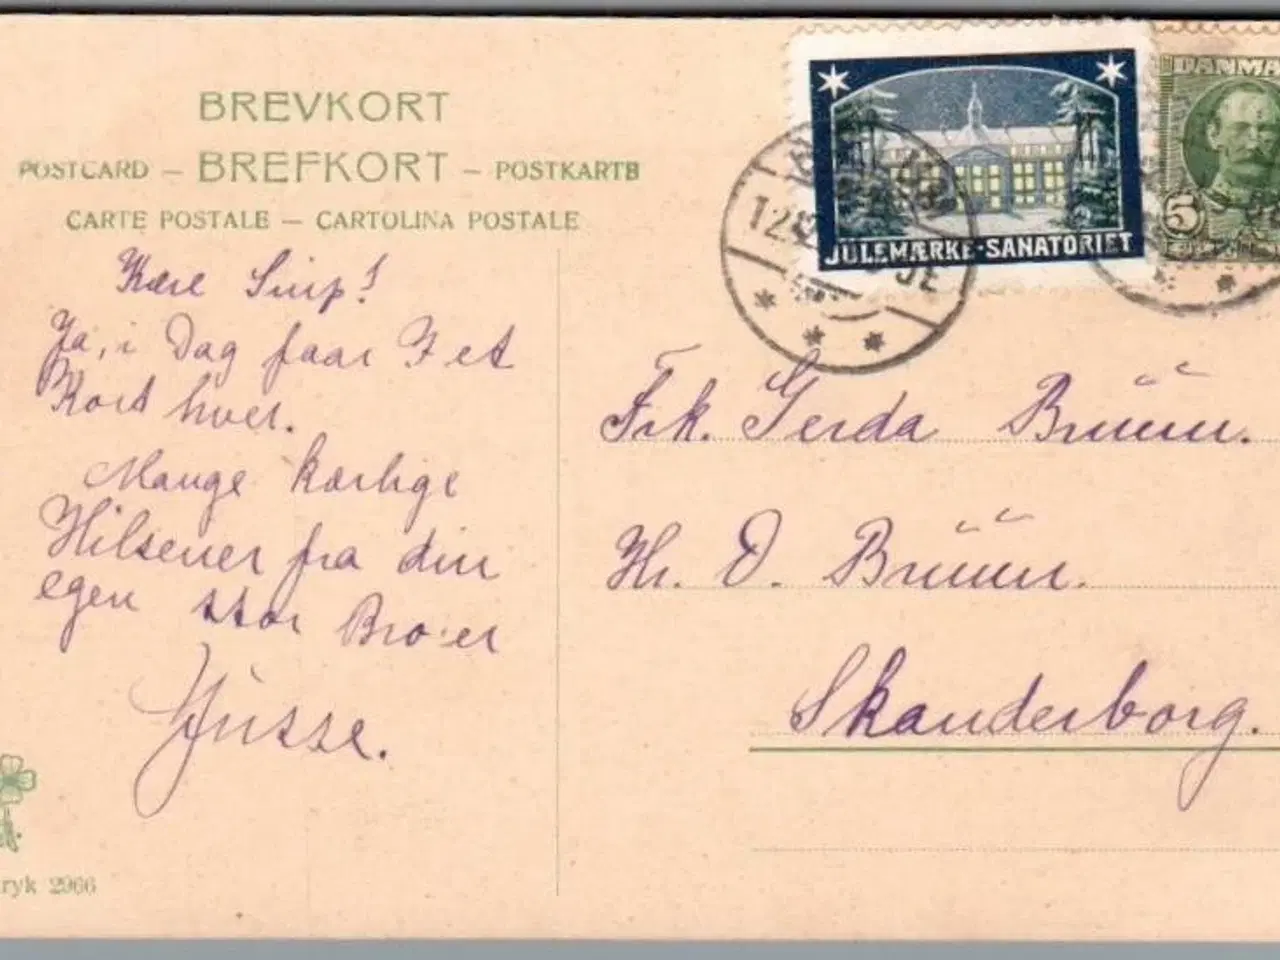 BREVKORT
POSTCARD – BREFKORT – POSTKARTE
CARTE POSTALE – CARTOLINA POSTALE
Kære Snip!
Ja, i Dag faar I et
Kort hver.
Mange kærlige
Hilsener fra din
egen stor Bro'er
Husse.
ryk 2966
JULEMÆRKE-SANATORIET
DANMA
5
12
Frk. Gerda Bruun.
Hr. O. Bruun.
Skanderborg.